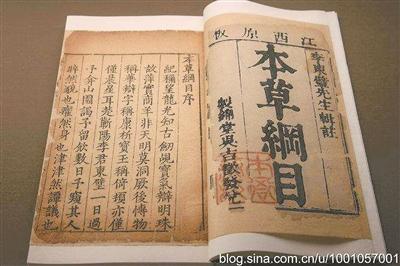 江西原板
李東璧先生輯註
本草綱目
製錦堂
本草綱目序
紀稱望龍光知古劒覘寶氣辯明珠
故萍實商羊非天明莫洞厥後博物
稱華辯字稱康析寶玉稱倚頓亦僅
僅晨星耳楚蘄陽李君東璧一日過
予弇山園謁予留飲數日予窺其人
睟然貌也癯然身也津津然譚議也
blog.sina.com.cn/u/1001057001